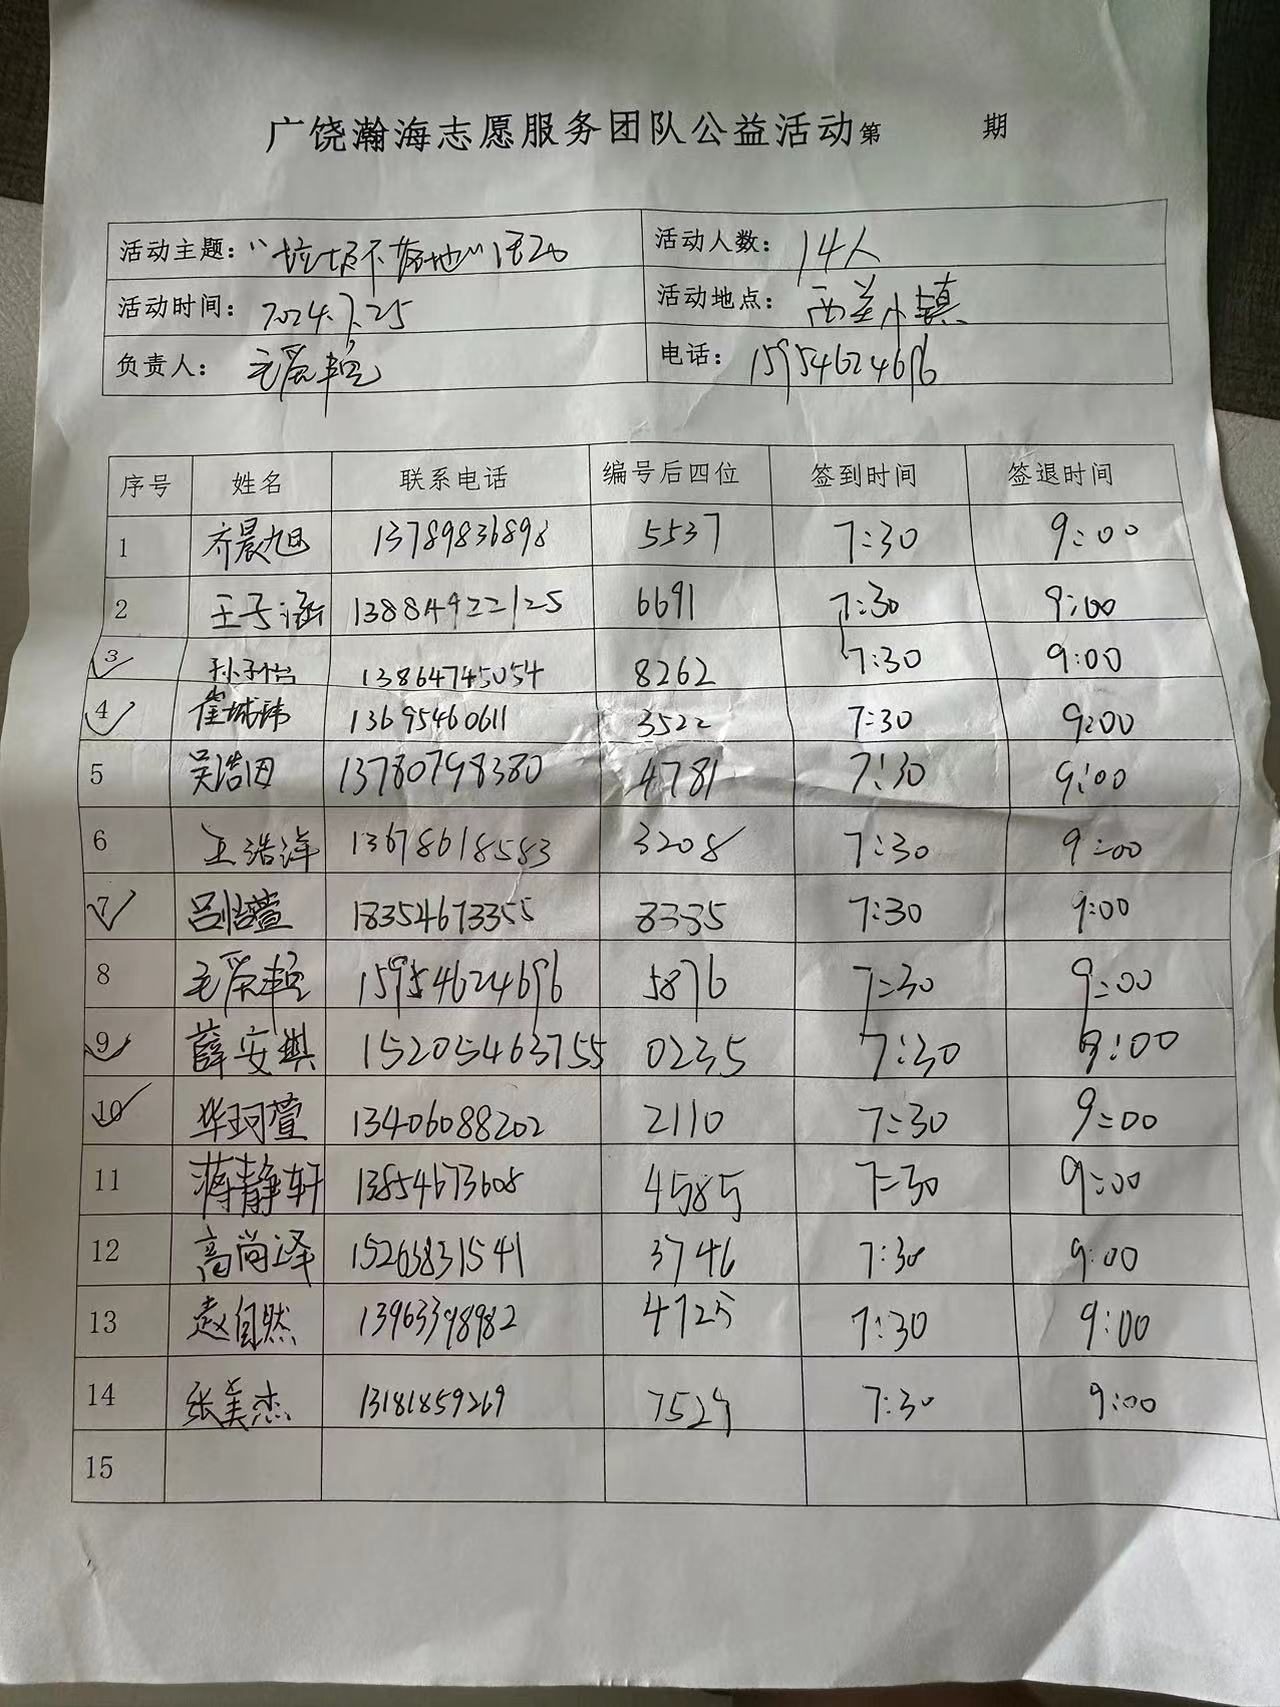 广饶瀚海志愿服务团队公益活动第 期
活动主题：“垃圾不落地”活动 活动人数：14人
活动时间：2024.7.25 活动地点：西差小镇
负责人： 电话：15954624696
序号 姓名 联系电话 编号后四位 签到时间 签退时间
1 齐晨旭 13789836898 5537 7:30 9:00
2 王子涵 13884922125 6691 7:30 9:00
3 孙子怡 13864745054 8262 7:30 9:00
4 崔城玮 13695460611 3522 7:30 9:00
5 吴浩因 13780798380 4781 7:30 9:00
6 王浩洋 13678618583 3208 7:30 9:00
7 吕怡萱 18354673355 8335 7:30 9:00
8 15954624696 5876 7:30 9:00
9 薛安琪 15205463755 0235 7:30 9:00
10 毕珂萱 13406088202 2110 7:30 9:00
11 蒋静轩 13854673608 4585 7:30 9:00
12 高尚泽 15263831541 3746 7:30 9:00
13 赵自然 13963398982 4725 7:30 9:00
14 张美杰 13181859269 7529 7:30 9:00
15